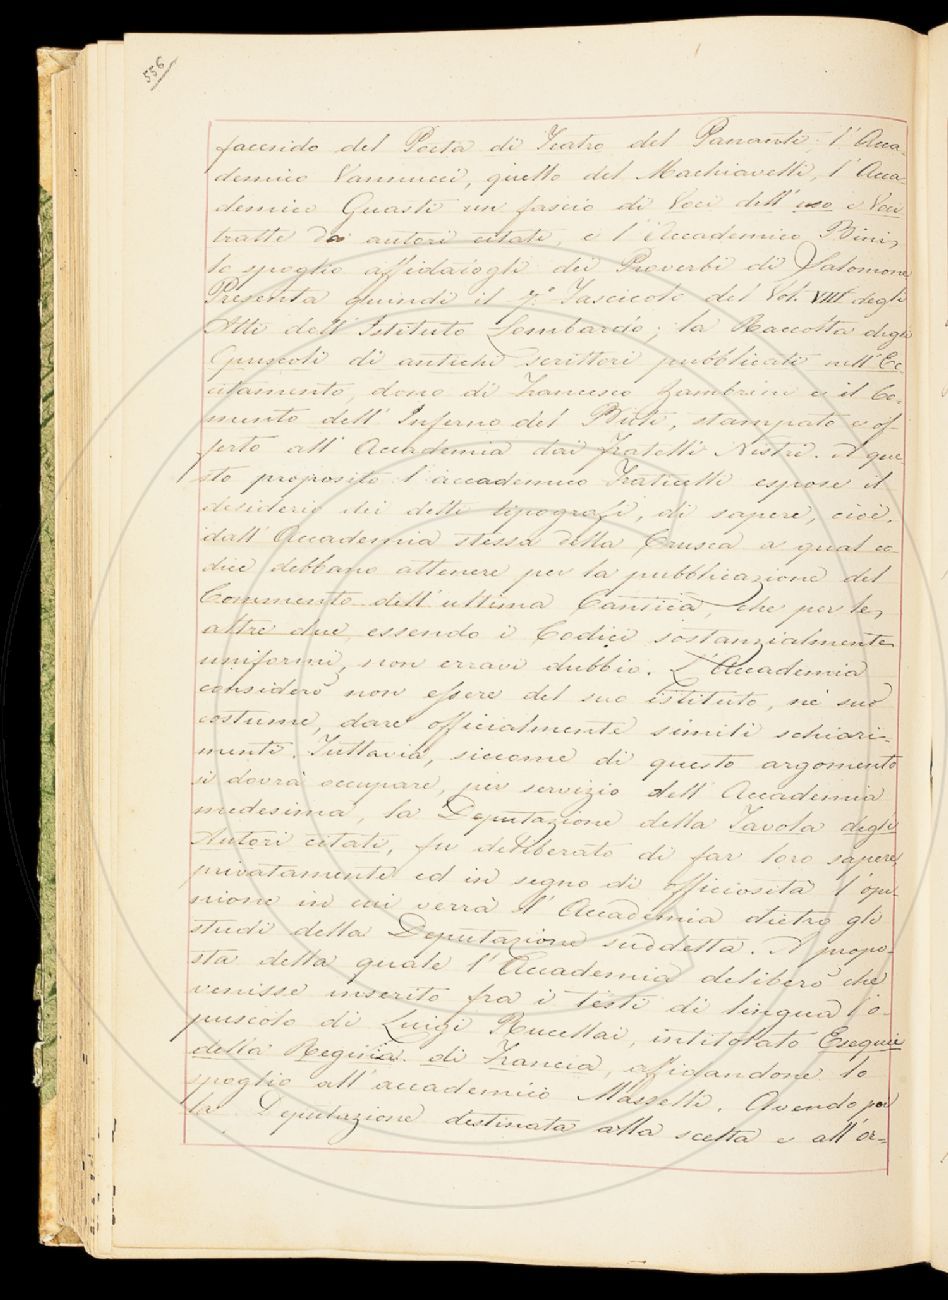 556
faccsido del Poeta di Teatro del Pananti; l'Acca-
demico Vannucci, quello del Machiavelli, l'Acca-
demico Guasti un fascio di Voci dell'uso e Voci
tratte da autori citati, e l'Accademico Bini,
lo spoglio affidatogli dei Proverbi di Salomone
Presenta quindi il 7.° Fascicolo del Vol. VIII degli
Atti dell'Istituto Lombardo; la Raccolta degli
Opuscoli di antichi scrittori pubblicati nell'Ec-
citamento, dono di Francesco Zambrini e il Co-
mento dell'Inferno del Buti, stampato e of-
ferto all'Accademia dai fratelli Nistri. A que-
sto proposito l'accademico Fraticelli espose il
desiderio dei detti tipografi, di sapere, cioè,
dall'Accademia stessa della Crusca a qual co-
dice debbano attenere per la pubblicazione del
Commento dell'ultima Cantica, che per le
altre due, essendo i Codici sostanzialmente
uniformi, non eravi dubbio. L'Accademia
considerò non essere del suo istituto, nè suo
costume, dare officialmente simili schiari-
menti. Tuttavia, siccome di questo argomento
si dovrà occupare, per servizio dell'Accademia
medesima, la Deputazione della Tavola degli
Autori citati, fu deliberato di far loro sapere
privatamente ed in segno di officiosità l'opi-
nione in cui verrà l'Accademia dietro gli
studi della Deputazione suddetta. A propo-
sta della quale l'Accademia deliberò che
venisse inserito fra i testi di lingua l'o-
puscolo di Luigi Rucellai, intitolato Esequie
della Regina di Francia, affidandone lo
spoglio all'accademico Masselli. Avendo poi
la Deputazione destinata alla scelta e all'or-